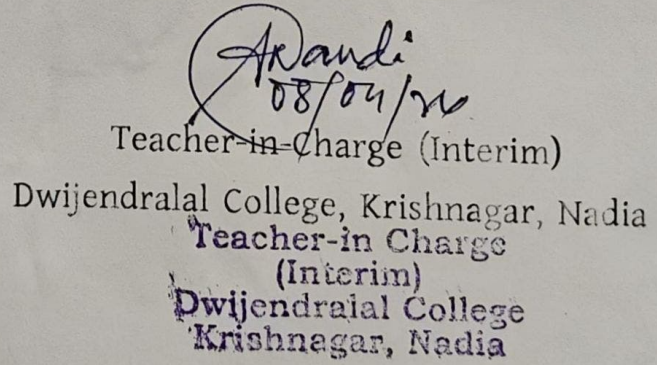 ANandi
08/04/26
Teacher-in-Charge (Interim)
Dwijendralal College, Krishnagar, Nadia
Teacher-in Charge
(Interim)
Dwijendralal College
Krishnagar, Nadia